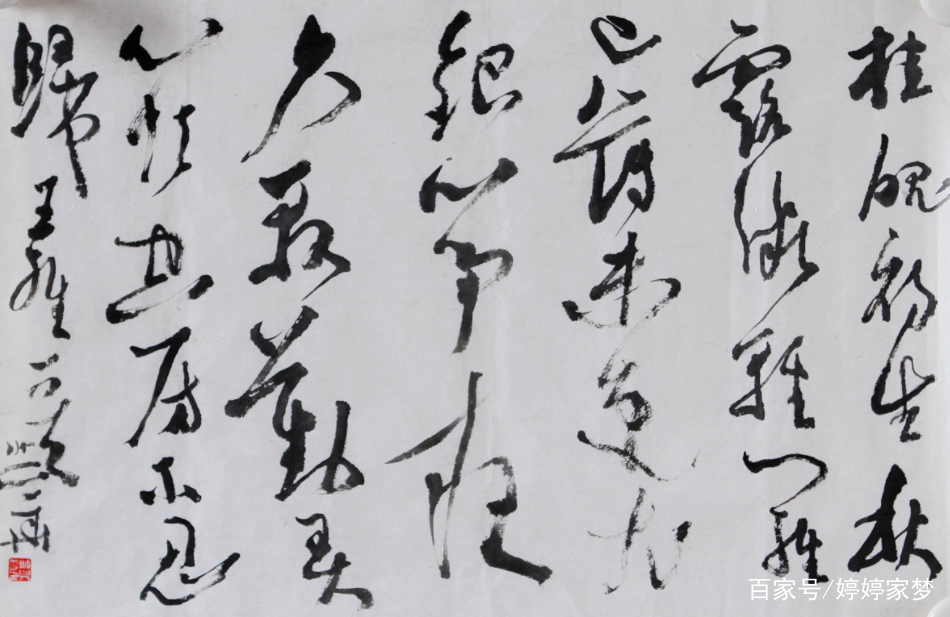 桂魄初生秋
露微輕羅
已薄未更衣
銀箏夜
久殷勤弄
心怯空房不忍
歸 王維
百家号/婷婷家梦